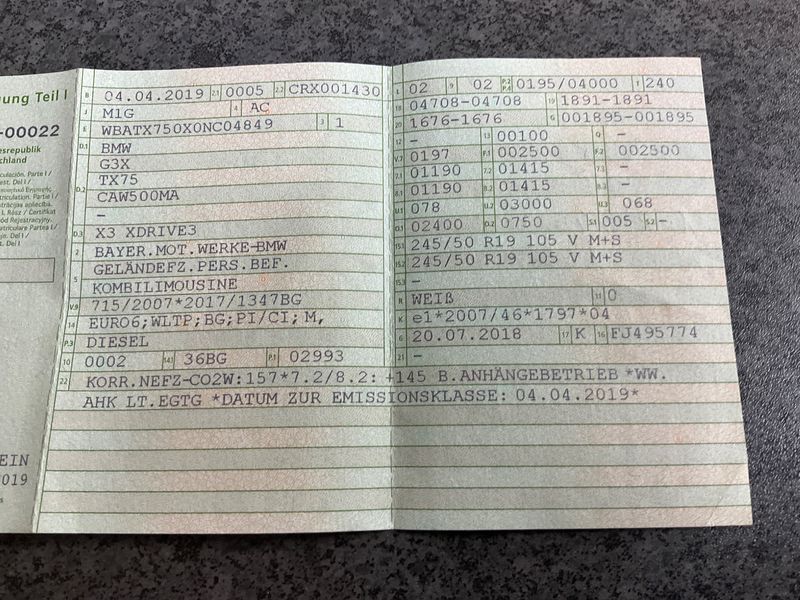 ung Teil I
-00022
esrepublik
chland
B 04.04.2019 2.1 0005 2.2 CRX001430
J M1G 4 AC
E WBATX750X0NC04849 3 1
D.1 BMW
G3X
D.2 TX75
CAW500MA
–
D.3 X3 XDRIVE3
2 BAYER.MOT.WERKE-BMW
GELÄNDEFZ.PERS.BEF.
5 KOMBILIMOUSINE
V.9 715/2007*2017/1347BG
14 EURO6;WLTP;BG;PI/CI; M,
P.3 DIESEL
10 0002 14.1 36BG P.1 02993
22 KORR.NEFZ-CO2W:157*7.2/8.2: +145 B.ANHÄNGEBETRIEB *WW.
AHK LT.EGTG *DATUM ZUR EMISSIONSKLASSE: 04.04.2019*
L 02 9 02 P.2 P.4 0195/04000 T 240
18 04708-04708 19 1891-1891
20 1676-1676 G 001895-001895
12 – 13 00100 Q –
V.7 0197 F.1 002500 F.2 002500
7.1 01190 7.2 01415 7.3 –
8.1 01190 8.2 01415 8.3 –
U.1 078 U.2 03000 U.3 068
O.1 02400 O.2 0750 S.1 005 S.2 –
15.1 245/50 R19 105 V M+S
15.2 245/50 R19 105 V M+S
15.3 –
R WEIß 11 0
K e1*2007/46*1797*04
6 20.07.2018 17 K 16 FJ495774
21 –
EIN
2019